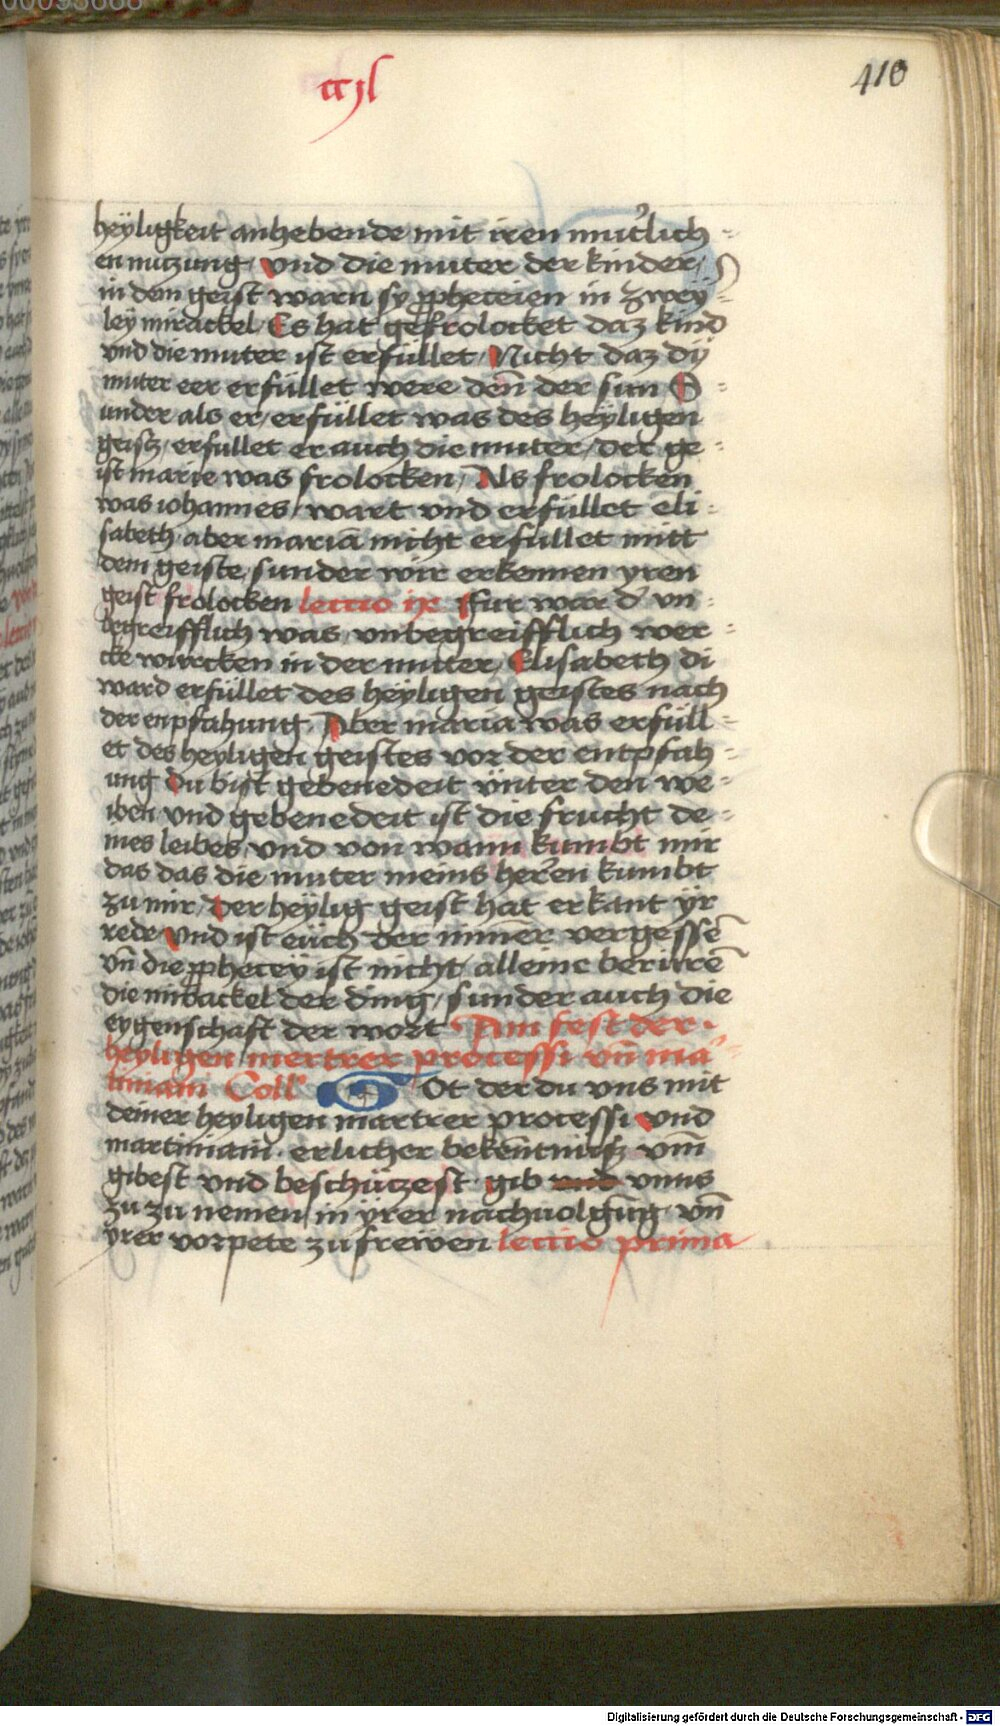 00095668
ccjl
410
heÿligkeit anhebende mit iren mut'lich-
en nutzung. vnd die muter der kinder/
in dem geist warn sy ꝓpheteien in zweÿ-
leÿ mirackel/ Es hat gefrolocket daz kind
vnd die muter ist erfüllet/ Nicht daz dÿ
muter eer erfüllet were den̄ der sun S-
under als er/ erfüllet was des heÿligen
geistz/ erfullet er auch die muter/ der ge-
ist marie was frolocken/ Als frolocken
was iohannes/ wart vnd erfüllet eli-
sabeth/ aber mariā nicht erfullet mitt
dem geiste/ sunder wir erkennen yren
geist frolocken lectio ix Fur war d' vn-
begreifflich was/ vnbegreifflich wer-
cke wurcken in der muter/ Elisabeth di
ward erfüllet des heÿligen geistes nach
der enpfahung/ Aber maria was erfüll-
et des heyligen geistes vor der entpfah-
ung Du bist gebenedeit vnter den we-
iben vnd gebenedeit ist die frucht de-
ines leibes/ vnd von wann kumbt mir
das das die muter meins herren kumbt
zu mir/ Der heÿlig geist hat erkant ÿr
rede/ vnd ist eüch der nimer vergessē
vn̄ die ꝓphecey ist nicht alleine berürē
die mirackel der ding/ sunder auch die
eygenschaft der wort Am fest der
heyligen mertrer processi vn̄ ma-
tiniani Coll' GOt der du vns mit
deiner heyligen martrer processi vnd
martiniani erlicher bekēntnusz vm̄
gibest vnd beschützest gib vnns
zu zu nemen/ in ÿrer nachuolgūng vn̄
yrer vorpete zu frewen lectio prima
Digitalisierung gefördert durch die Deutsche Forschungsgemeinschaft - DFG